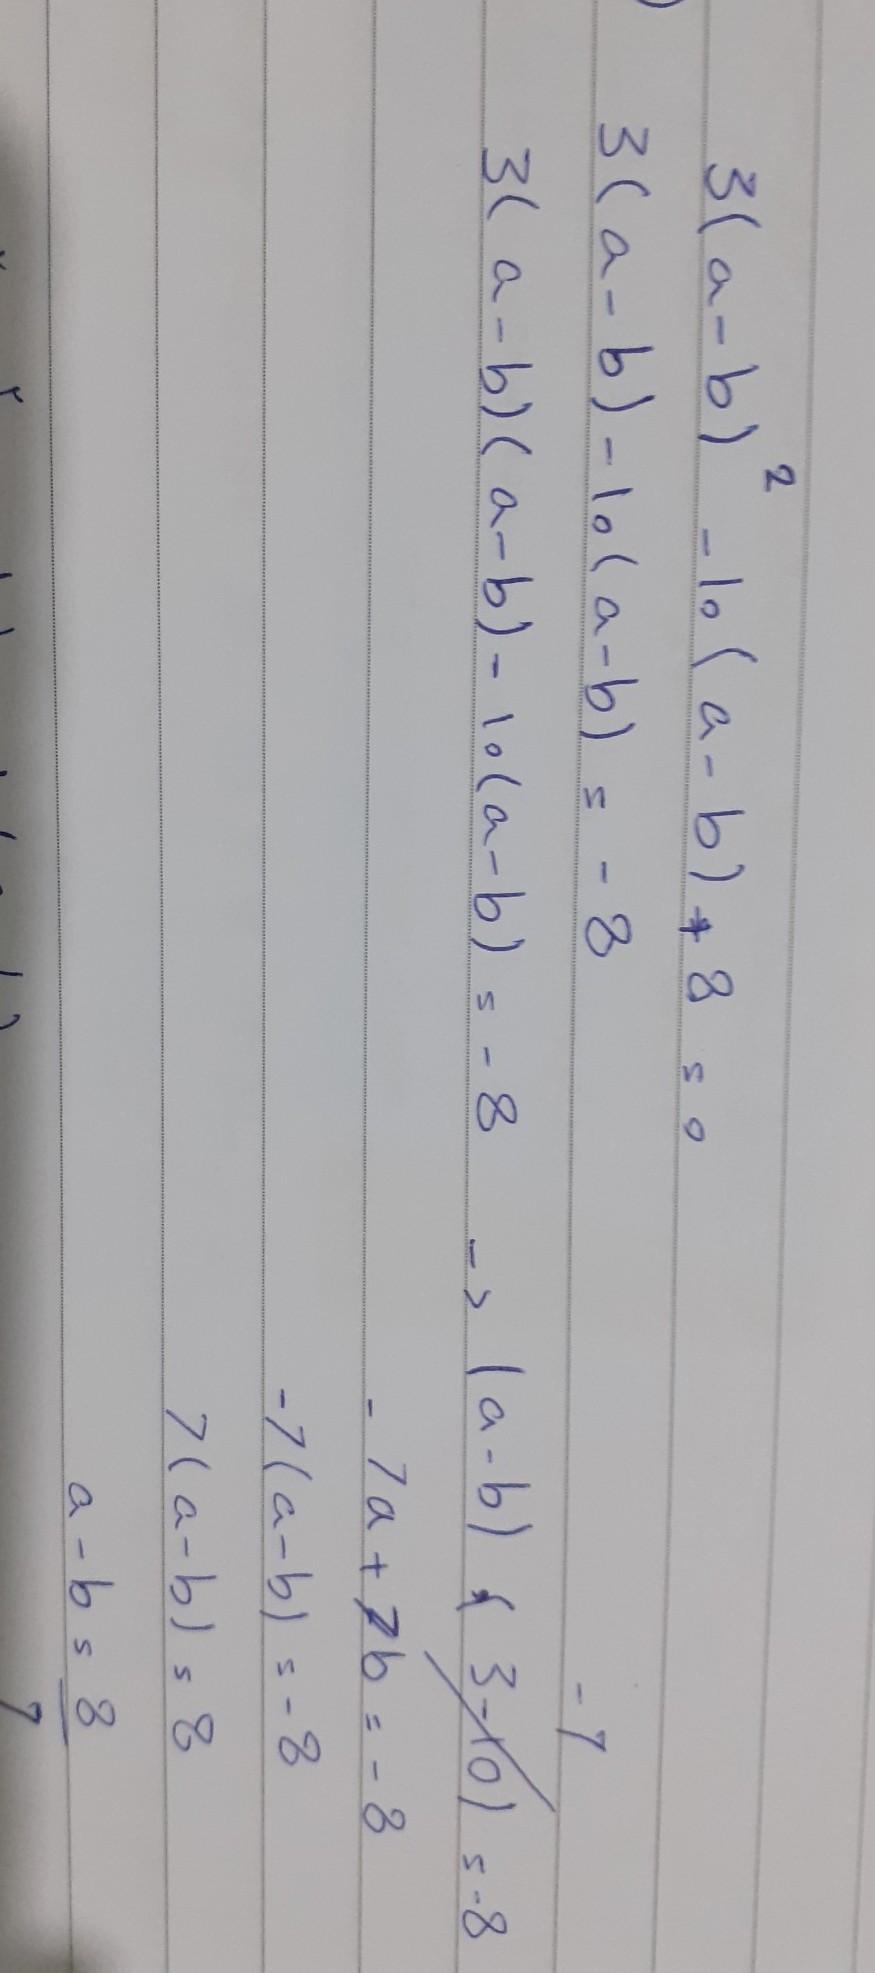 3(a-b)² -10(a-b)+8 = 0
3(a-b)-10(a-b) = -8
3(a-b)(a-b)-10(a-b) = -8 -> (a-b)(3-10) = -8
-7
-7a+7b = -8
-7(a-b) = -8
7(a-b) = 8
a-b = 8/7